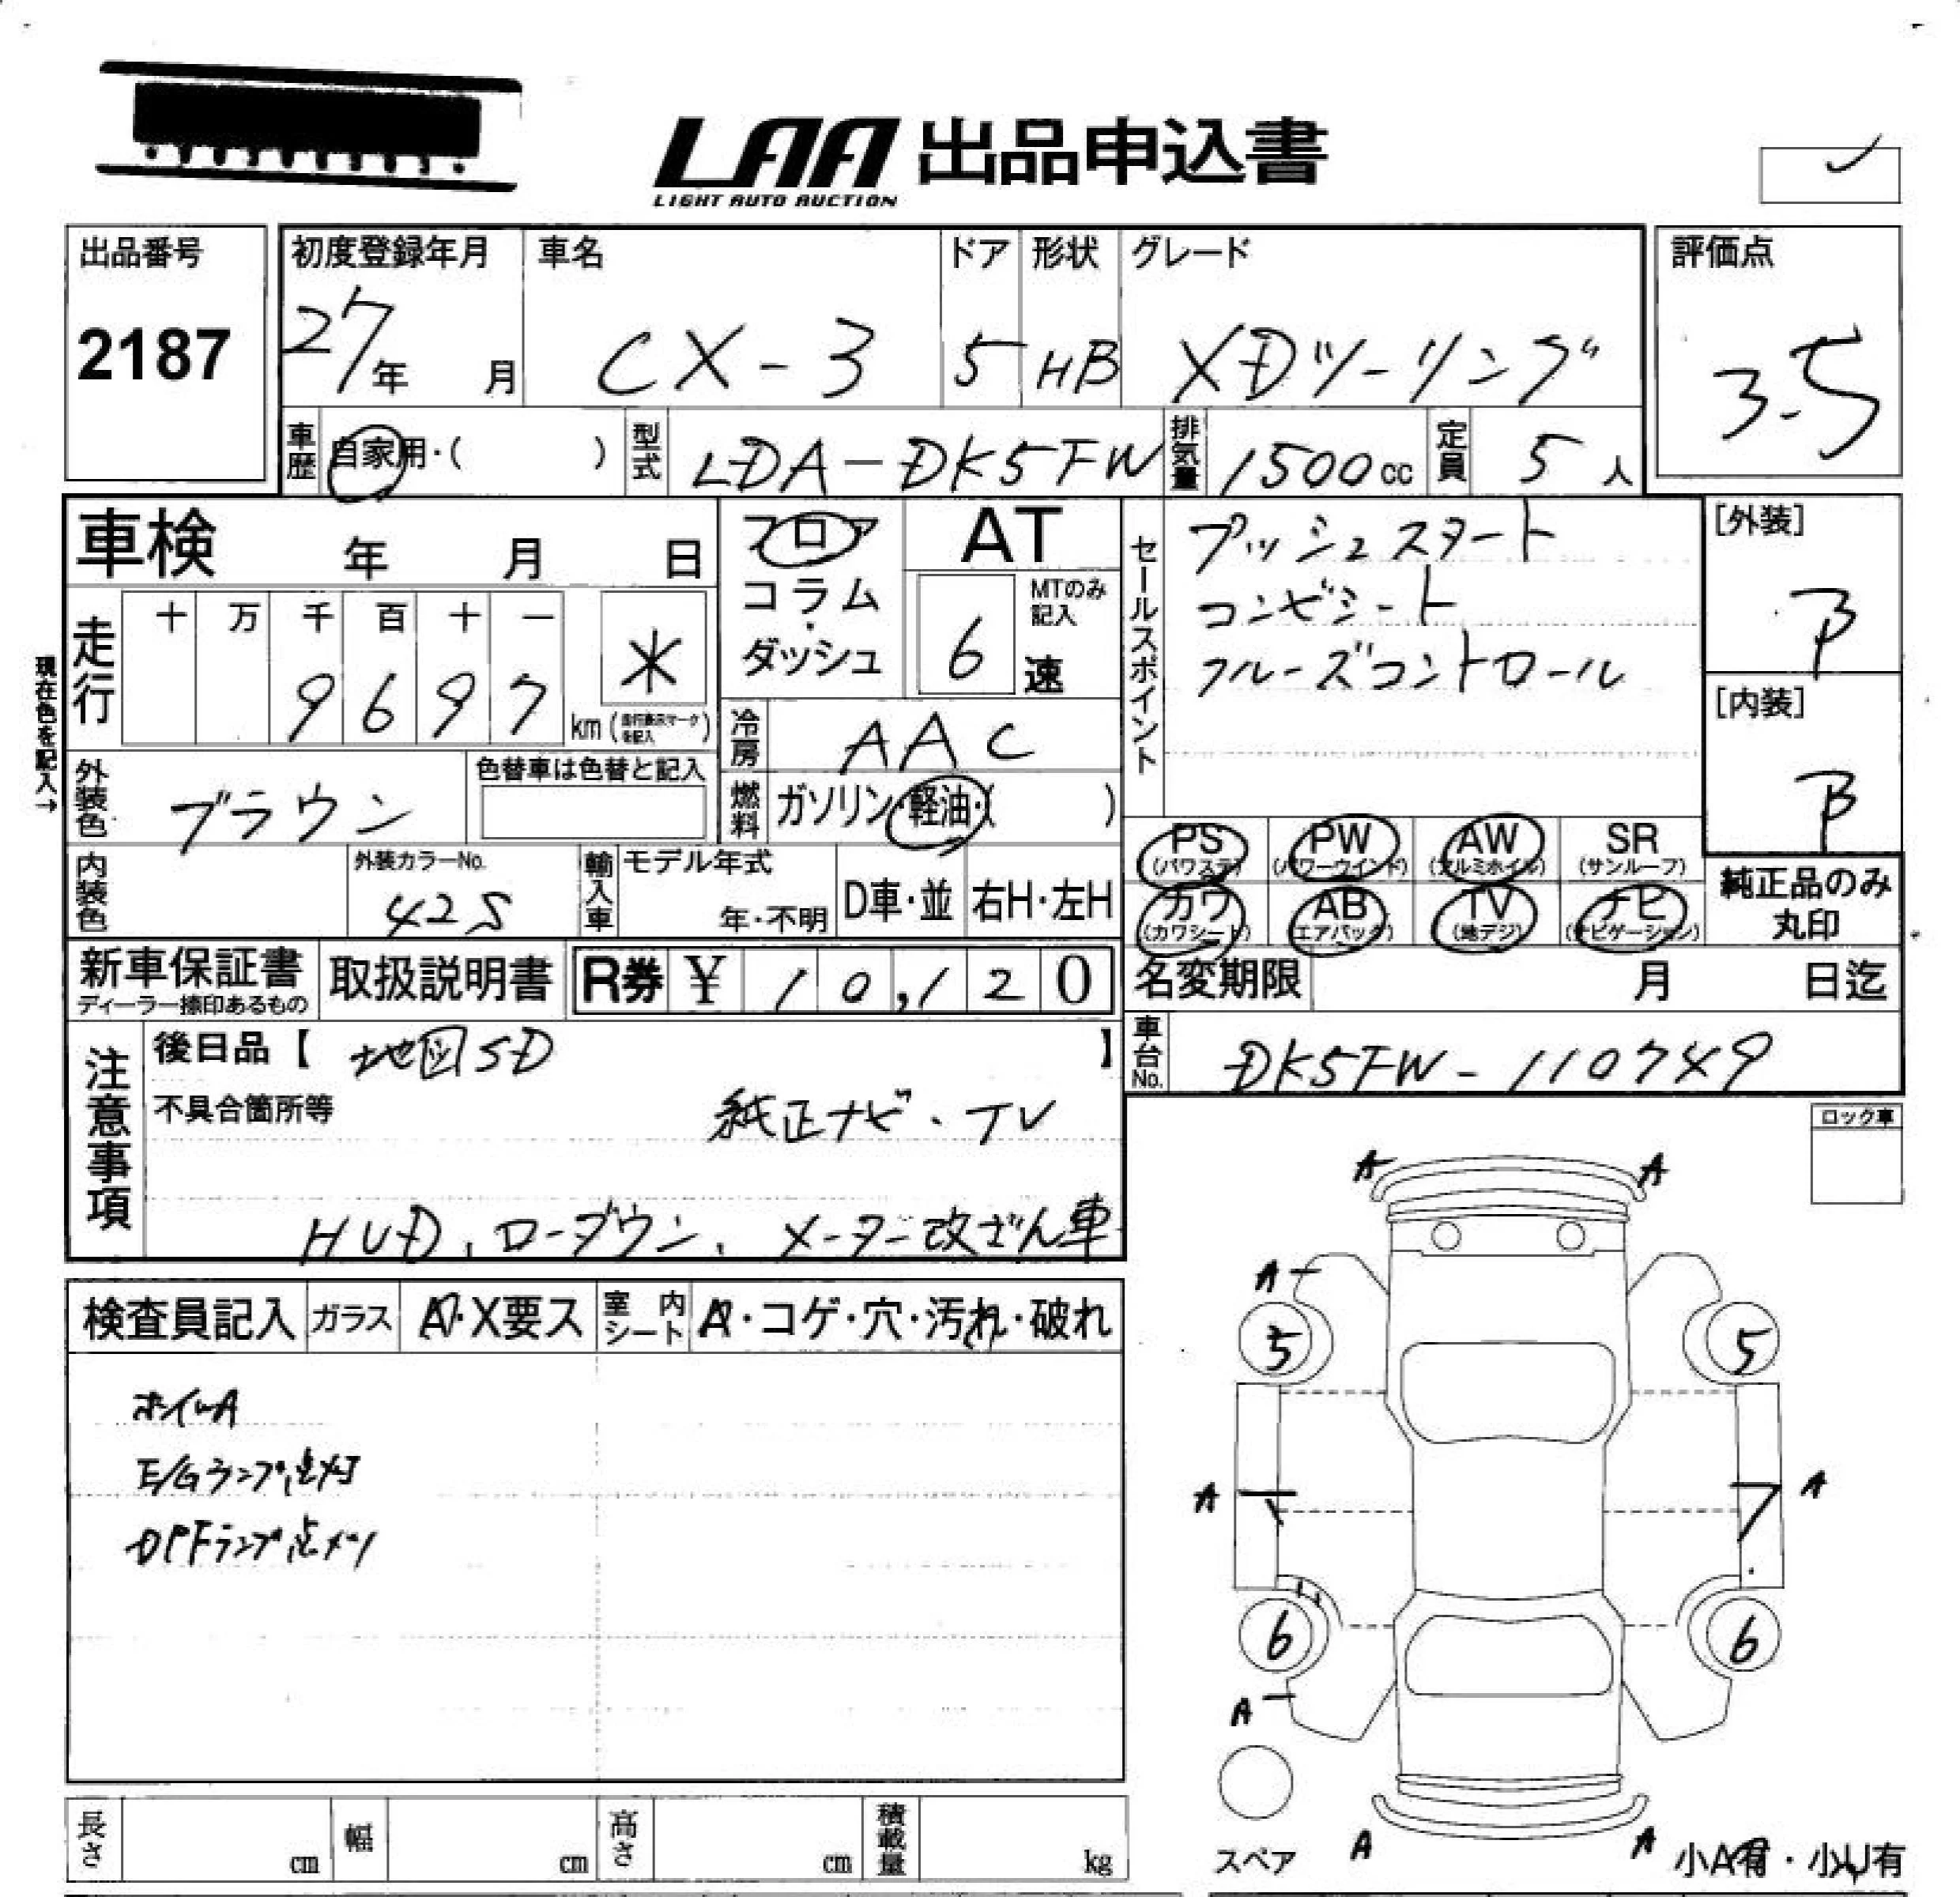 LAA 出品申込書
LIGHT AUTO AUCTION
出品番号 初度登録年月 車名 ドア 形状 グレード 評価点
2187 27年 月 CX-3 5 HB XDツーリング 3.5
車歴 自家用・( ) 型式 LDA-DK5FW 排気量 1500cc 定員 5人
車検 年 月 日 フロア AT セールスポイント プッシュスタート [外装]
コラム・ダッシュ 6速 MTのみ記入 コンビシート B
現在色を記入→ 走行 十 万 千 百 十 一 クルーズコントロール
9697 km ＊ (走行表示マークを記入) [内装]
冷房 AAC B
外装色 ブラウン 色替車は色替と記入 燃料 ガソリン・軽油・( )
PS (パワステ) PW (パワーウインド) AW (アルミホイル) SR (サンルーフ)
内装色 外装カラーNo. 42S 輸入車 モデル年式 年・不明 D車・並 右H・左H
カワ (カワシート) AB (エアバック) TV (地デジ) ナビ (ナビゲーション) 純正品のみ丸印
新車保証書 ディーラー捺印あるもの 取扱説明書 R券 ¥ 10,120 名変期限 月 日迄
注意事項 後日品【 地図SD 】 車台No. DK5FW-110749
不具合箇所等 純正ナビ・TV ロック車
HUD、ローダウン、メーター改ざん車
A A
A
検査員記入 ガラス A・X要ス 室内シート A・コゲ・穴・汚れ・破れ
5 5
ホイルA
E/Gランプ点灯
DPFランプ点灯
A A
6 6
A
長さ cm 幅 cm 高さ cm 積載量 kg
スペア A A 小A有・小U有